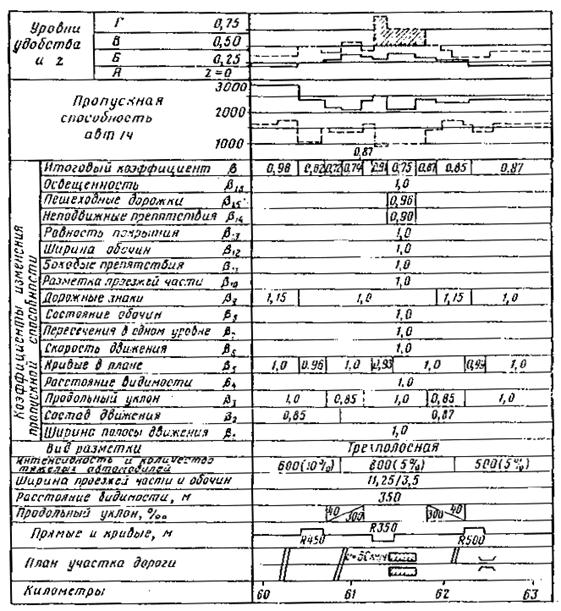 Уровни удобства и z
Г 0,75
В 0,50
Б 0,25
А z=0
Пропускная способность авт/ч
3000
2000
1000
0,87
Коэффициенты изменения пропускной способности
Итоговый коэффициент β 0,98 0,82 0,72 0,74 0,91 0,75 0,87 0,85 0,87
Освещенность 1,0
Пешеходные дорожки β15 0,96
Неподвижные препятствия β14 0,90
Ровность покрытия 1,0
Ширина обочин β12 1,0
Боковые препятствия 1,0
Разметка проезжей части β10 1,0
Дорожные знаки 1,15 1,0 1,15 1,0
Состояние обочин 1,0
Пересечения в одном уровне 1,0
Скорость движения β6 1,0
Кривые в плане β5 1,0 0,96 1,0 0,93 1,0 1,0
Расстояние видимости β4 1,0
Продольный уклон β3 1,0 0,85 1,0 0,85 1,0
Состав движения β2 0,85 0,87
Ширина полосы движения 1,0
Вид разметки Трехполосная
Интенсивность и количество тяжелых автомобилей 600(10%) 800(5%) 500(5%)
Ширина проезжей части и обочин 11,25/3,5
Расстояние видимости, м 350
Продольный уклон, ‰ 40 300 300 40
Прямые и кривые, м R450 R350 R500
План участка дороги
Километры 60 61 62 63